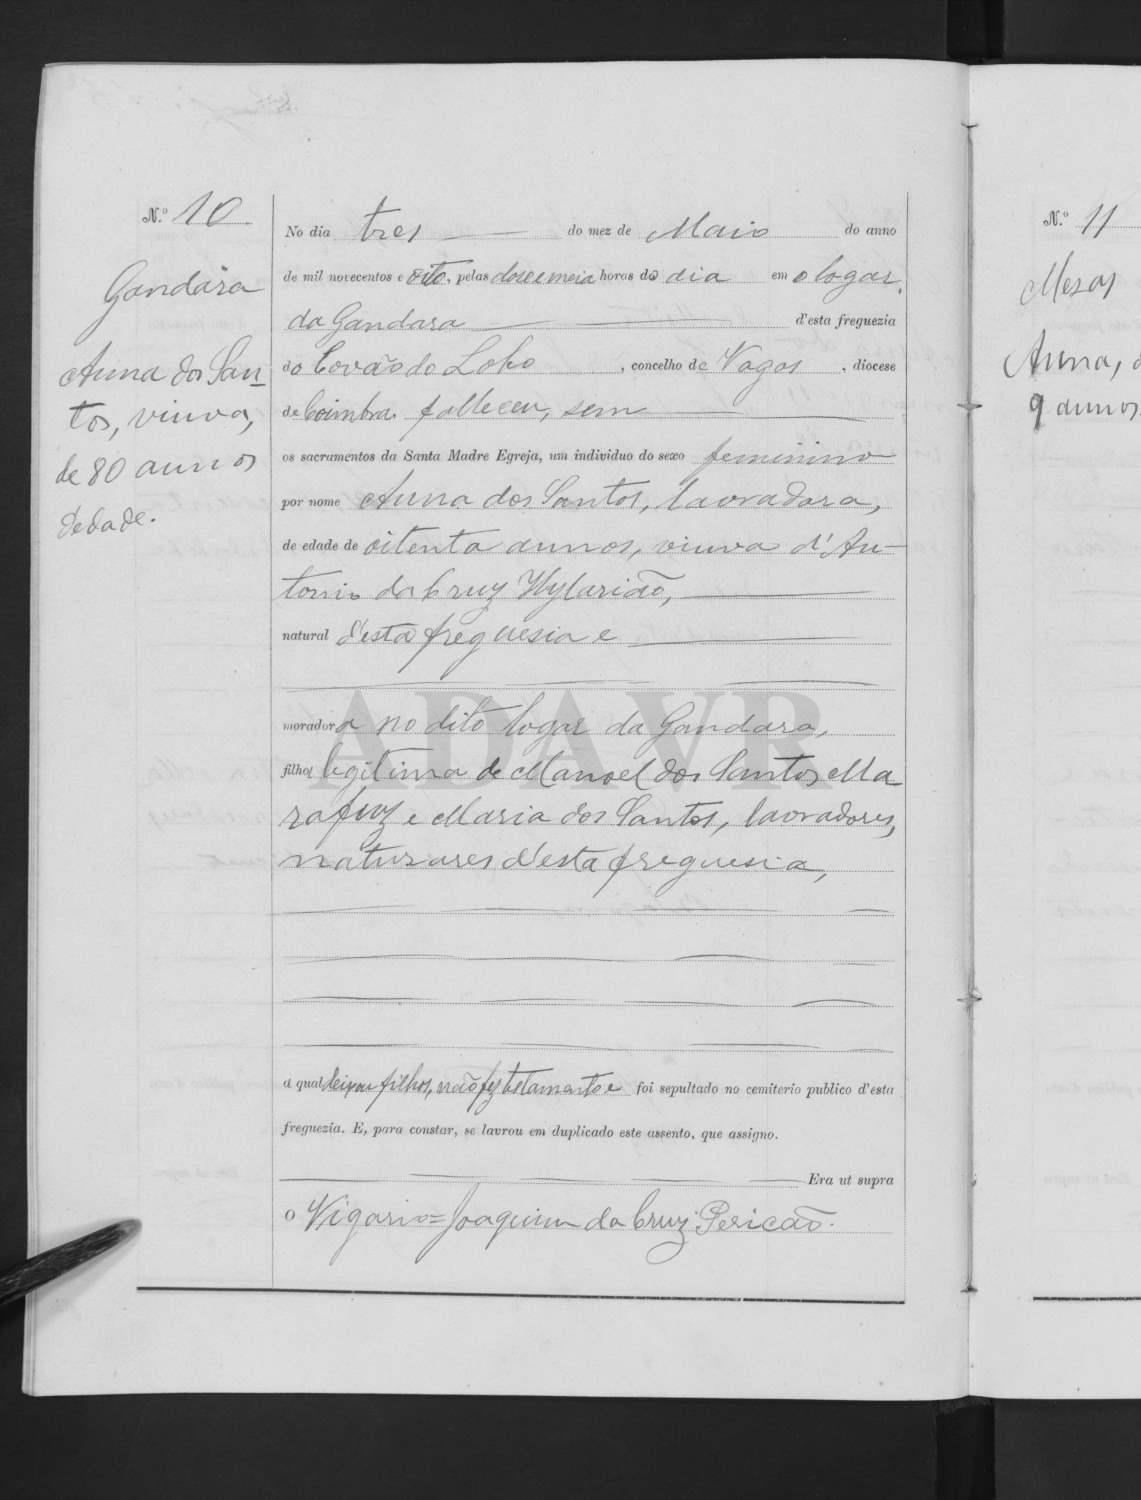 N.º 10
Gandára
Anna dos San-
tos, viuva,
de 80 annos
d'edade.
No dia tres do mez de Maio do anno
de mil novecentos e oito, pelas dose e meia horas do dia em o logar
da Gandara d'esta freguezia
do Covão do Lobo, concelho de Vagos, diocese
de Coimbra falleceu, sem
os sacramentos da Santa Madre Egreja, um individuo do sexo feminino
por nome Anna dos Santos, lavradora,
de edade de oitenta annos, viuva d'An-
tonio da Cruz Hylarião,
natural d'esta freguesia e
ADAVR
moradora no dito logar da Gandara,
filha legitima de Manoel dos Santos Ma
rafuz e Maria dos Santos, lavradores,
naturares d'esta freguesia,
a qual deixou filhos, não fez testamento e foi sepultado no cemiterio publico d'esta
freguezia. E, para constar, se lavrou em duplicado este assento, que assigno.
Era ut supra
O Vigario = Joaquim da Cruz Pericão.
N.º 11
Mesas
Anna, d
9 annos